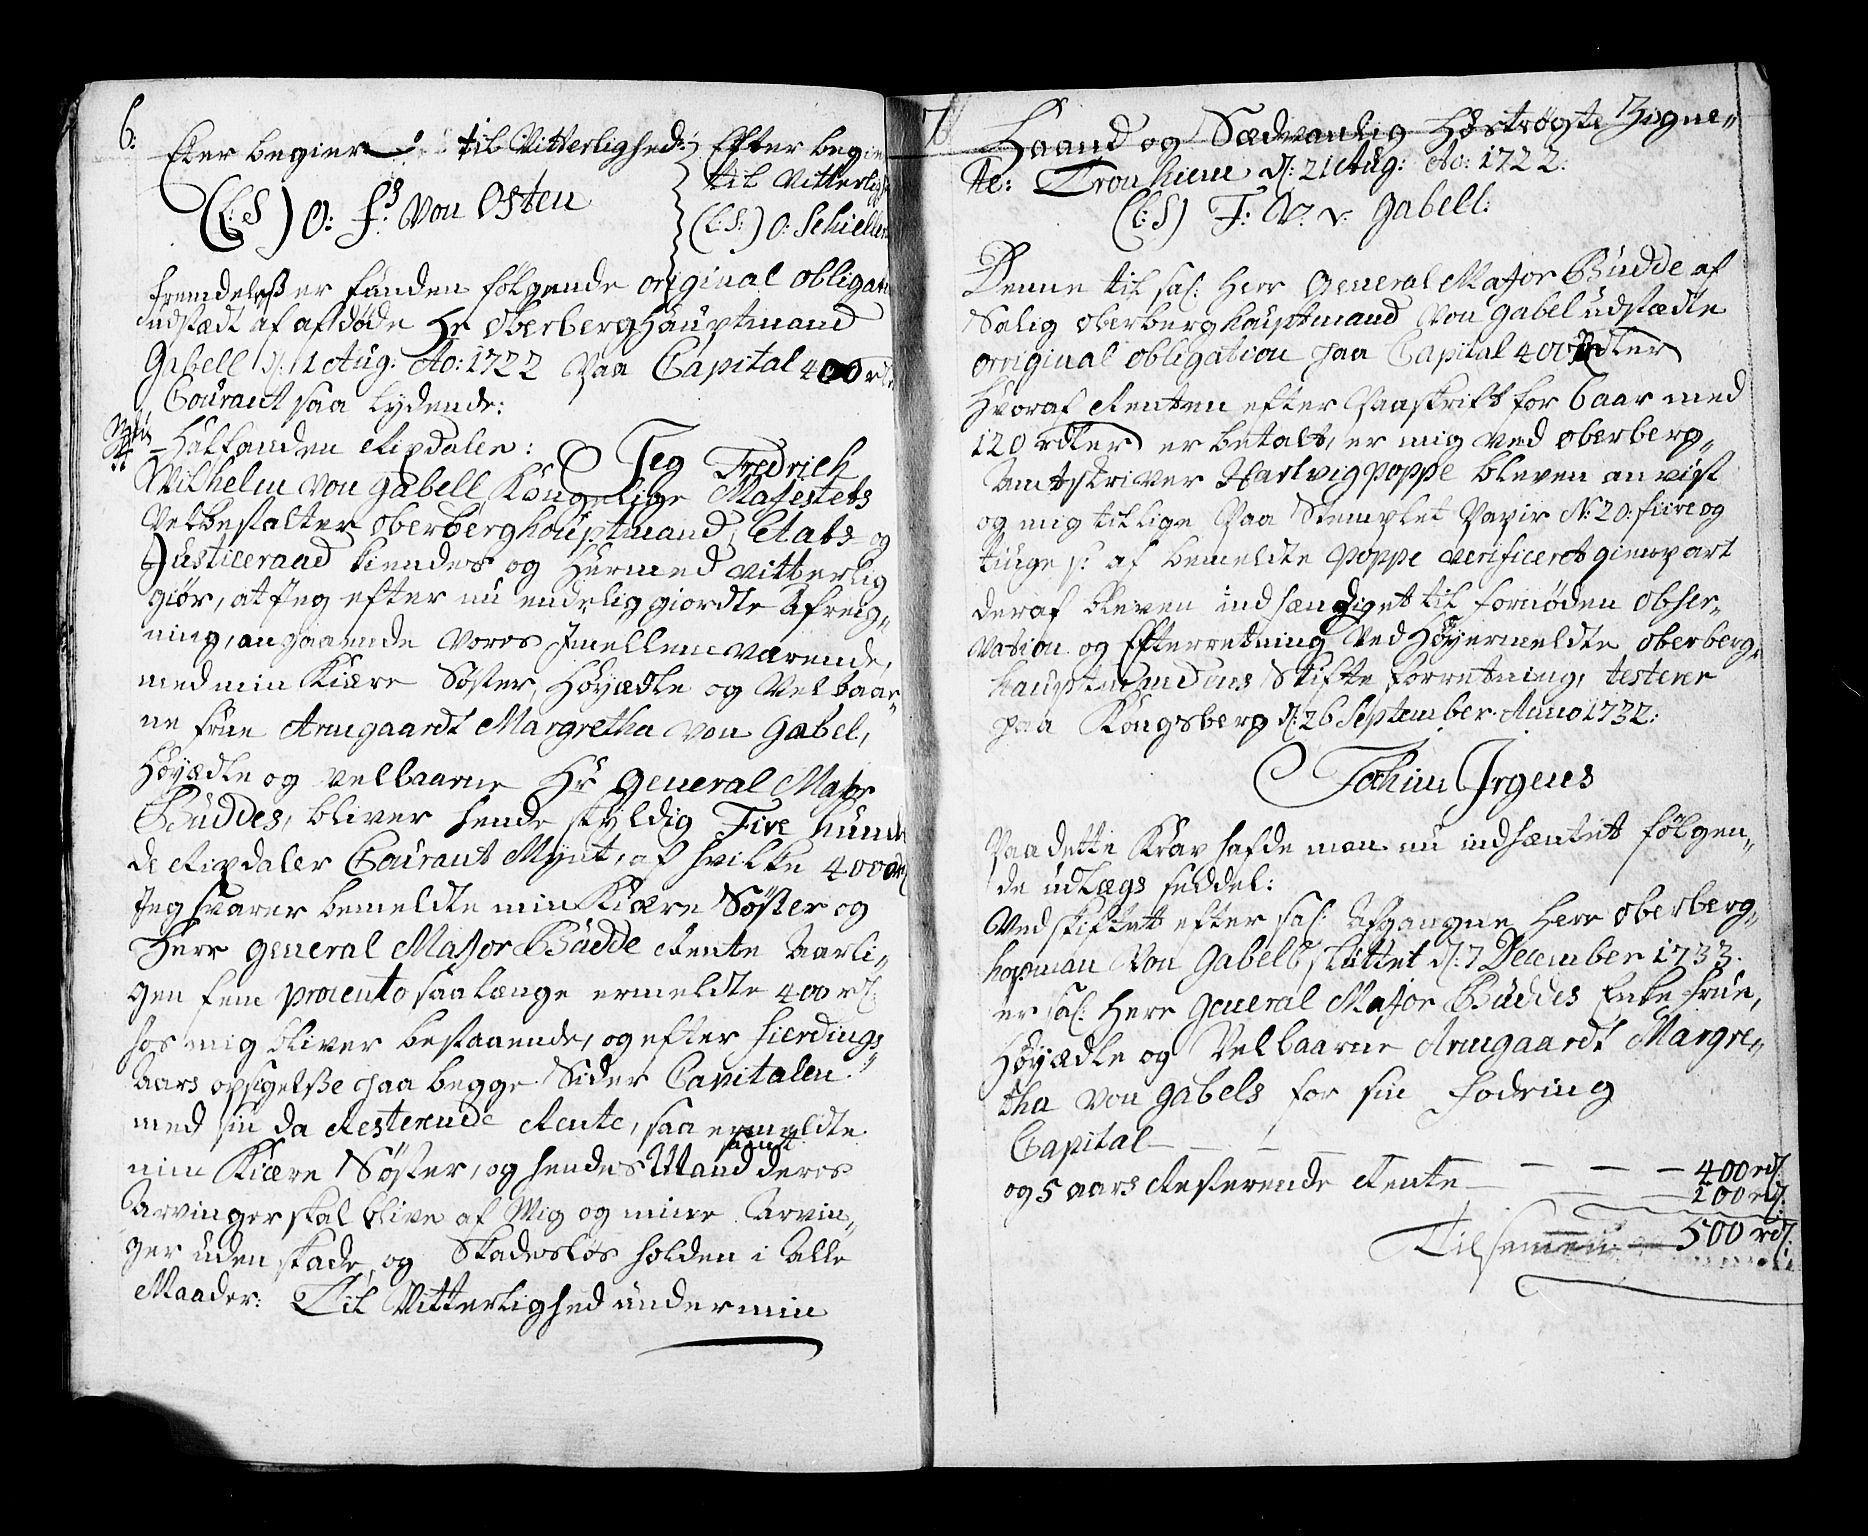 6:
Eter begier til Vitterlighed:
(L: S) O: F: von Osten
Efter begie
til Vitterligh
(L: S:) O: Schieller
fremdeles er funden følgende original obligati
udstædt af afdøde Hr Oberberghauptmand
Gabell d: 21 Aug: Ao: 1722 paa Capital 400 rd
Courant saa lydende:
No 4
Halfanden Rixdaler:
Jeg Fredrich
Wilhelm von Gabell Kongelige Majestets
Velbestalter Oberberghauptmand, Etats og
Justiceraad kiendes og hermed vitterlig
giør, at Jeg efter nu endelig giordte Afreig„
ning, angaaende vores Imellem værende,
med min Kiære Søster, Høyædle og Velbaar„
ne frue Armgaardt Margretha von Gabel,
Høyædle og velbaarne Hr General Major
Buddes, bliver hende skyldig Fire hund
de Rixdaler Courant Mynt, af hvilke 400 rd
Jeg svarer bemeldte min Kiære Søster og
Herr General Major Budde Rente Aarli„
gen fem procento saalænge ermeldte 400 rd:
hos mig bliver bestaaende, og efter fierdings
Aars opsigelse paa begge Sider Capitalen
med sin da Resterende Rente, saa ermeldte
min Kiære Søster, og hendes Mand samt deres
Arvinger skal blive af Mig og mine Arvin„
ger uden skade, og Skadesløs holden i Alle
Maader: Til Vitterlighed under min
7
Haand og Sædvanlig hostrøgte Zigne„
te: Tronhiem d: 21 Aug: Ao: 1722:
(L: S) F: W: v: Gabell:
Denne til sal: Herr General Major Budde af
Salig Oberberghauptmand von Gabel udstædte
original obligation paa Capital 400 Rdler
hvoraf Renten efter Paaskrift for 6 aar med
120 rdler er betalt, er mig ved Oberberg„
Amtskriver Hartvig Poppe bleven anvist
og mig tillige paa Stemplet Papir No: 20: fiire og
tiuge s: af bemeldte Poppe verificeret gienpart
deraf bleven indhændiget til fornøden obser„
vation og Efterretning ved Høyermeldte Oberberg„
hauptmands Skifte forretning, testerer
paa Kongsberg d: 26 September Anno 1732:
Jochim Irgens
Paa dette Krav hafde man nu indhæntet følgen„
de udlægs seddel:
Ved skiftet efter sal: Afgangne Herr Oberberg„
hopman von Gabell sluttet d: 7 December 1733.
er sal: Herr General Major Buddes Enke frue,
Høyædle og Velbaarne Armgaardt Margre„
tha von Gabels for sin fodring
Capital — — — — — — 400 rd:
og 5 aars Resterende Rente — — — 100 rd:
Tilsamen — 500 rd: